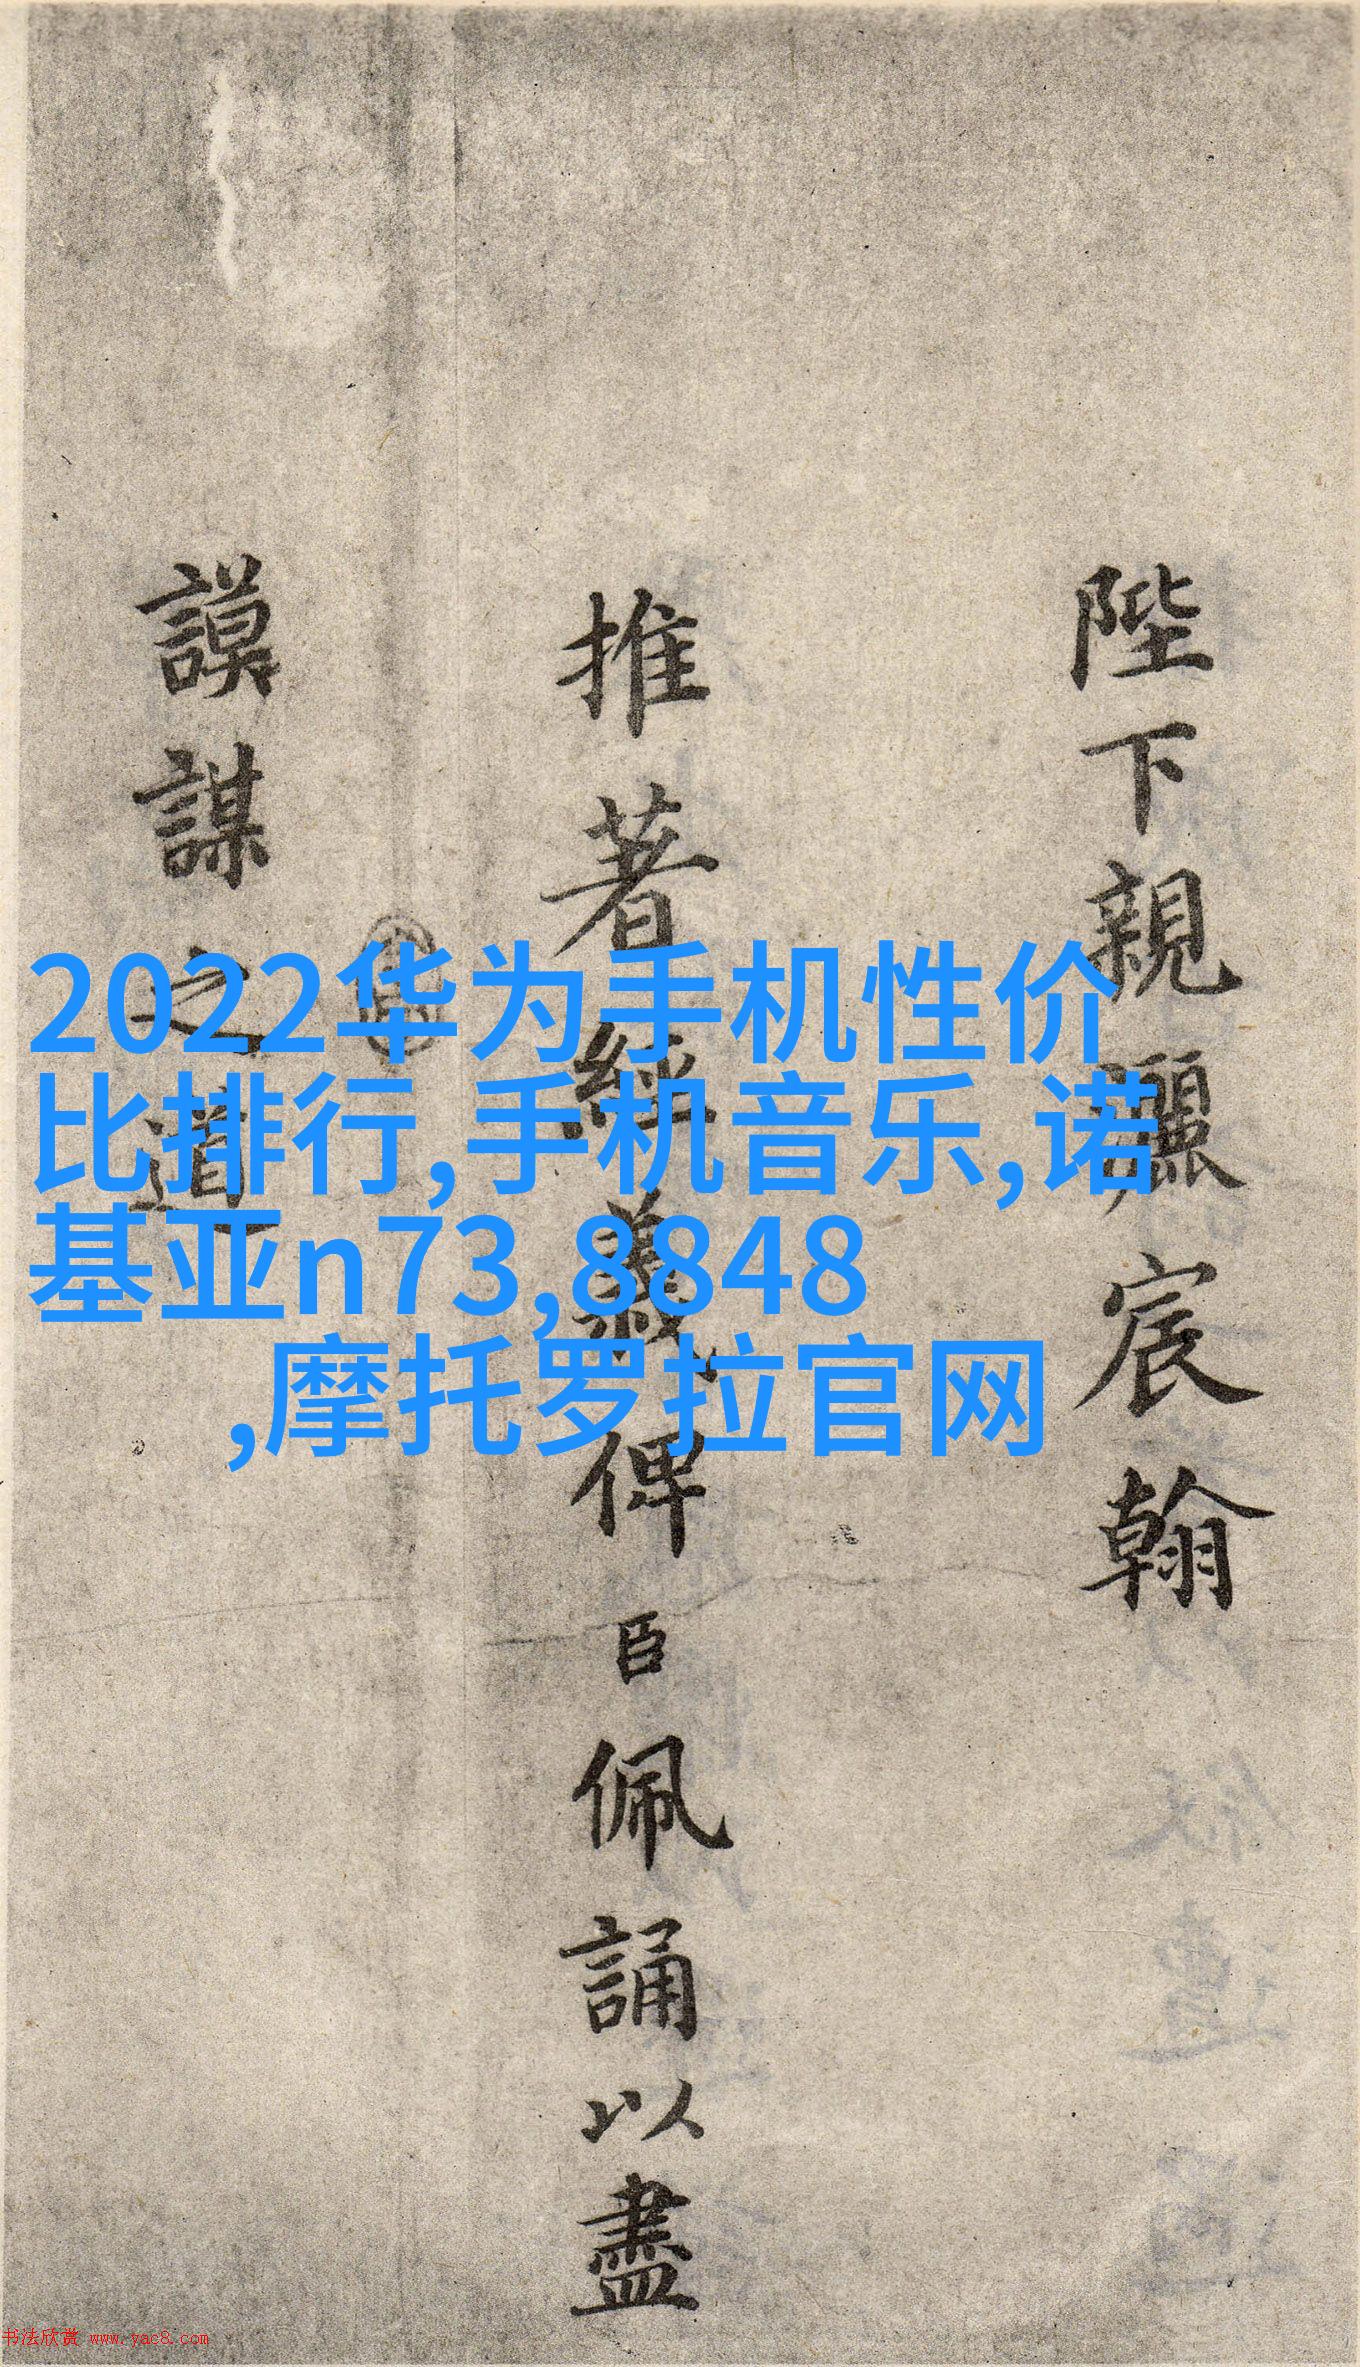 陛下親灑宸翰
推著經義俾臣佩誦以盡
謨謀之道
2022华为手机性价
比排行,手机音乐,诺
基亚n73,8848
,摩托罗拉官网
书法欣赏 www.yac8.com